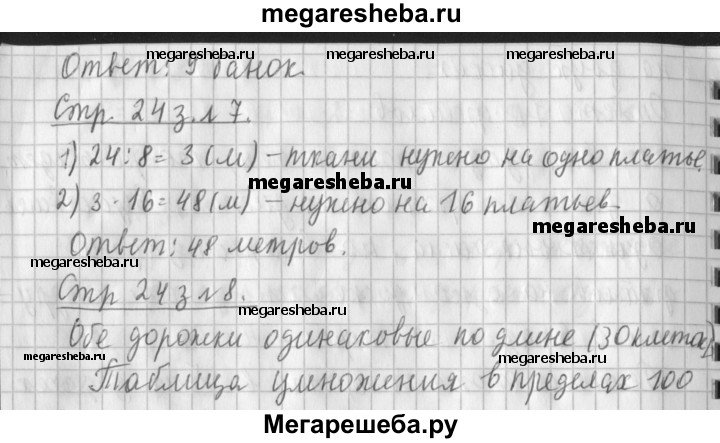 megaresheba.ru
Ответ: 9 банок.
megaresheba.ru megaresheba.ru
Стр. 24 з. № 7.
1) 24 : 8 = 3 (м) – ткани нужно на одно платье.
megaresheba.ru
2) 3 · 16 = 48 (м) – нужно на 16 платьев.
megaresheba.ru
Ответ: 48 метров.
megaresheba.ru megaresheba.ru
Стр 24 з № 8.
megaresheba.ru megaresheba.ru
Обе дорожки одинаковые по длине (30 клеток)
megaresheba.ru megaresheba.ru megaresheba.ru
Таблица умножения в пределах 100
Мегарешеба.ру